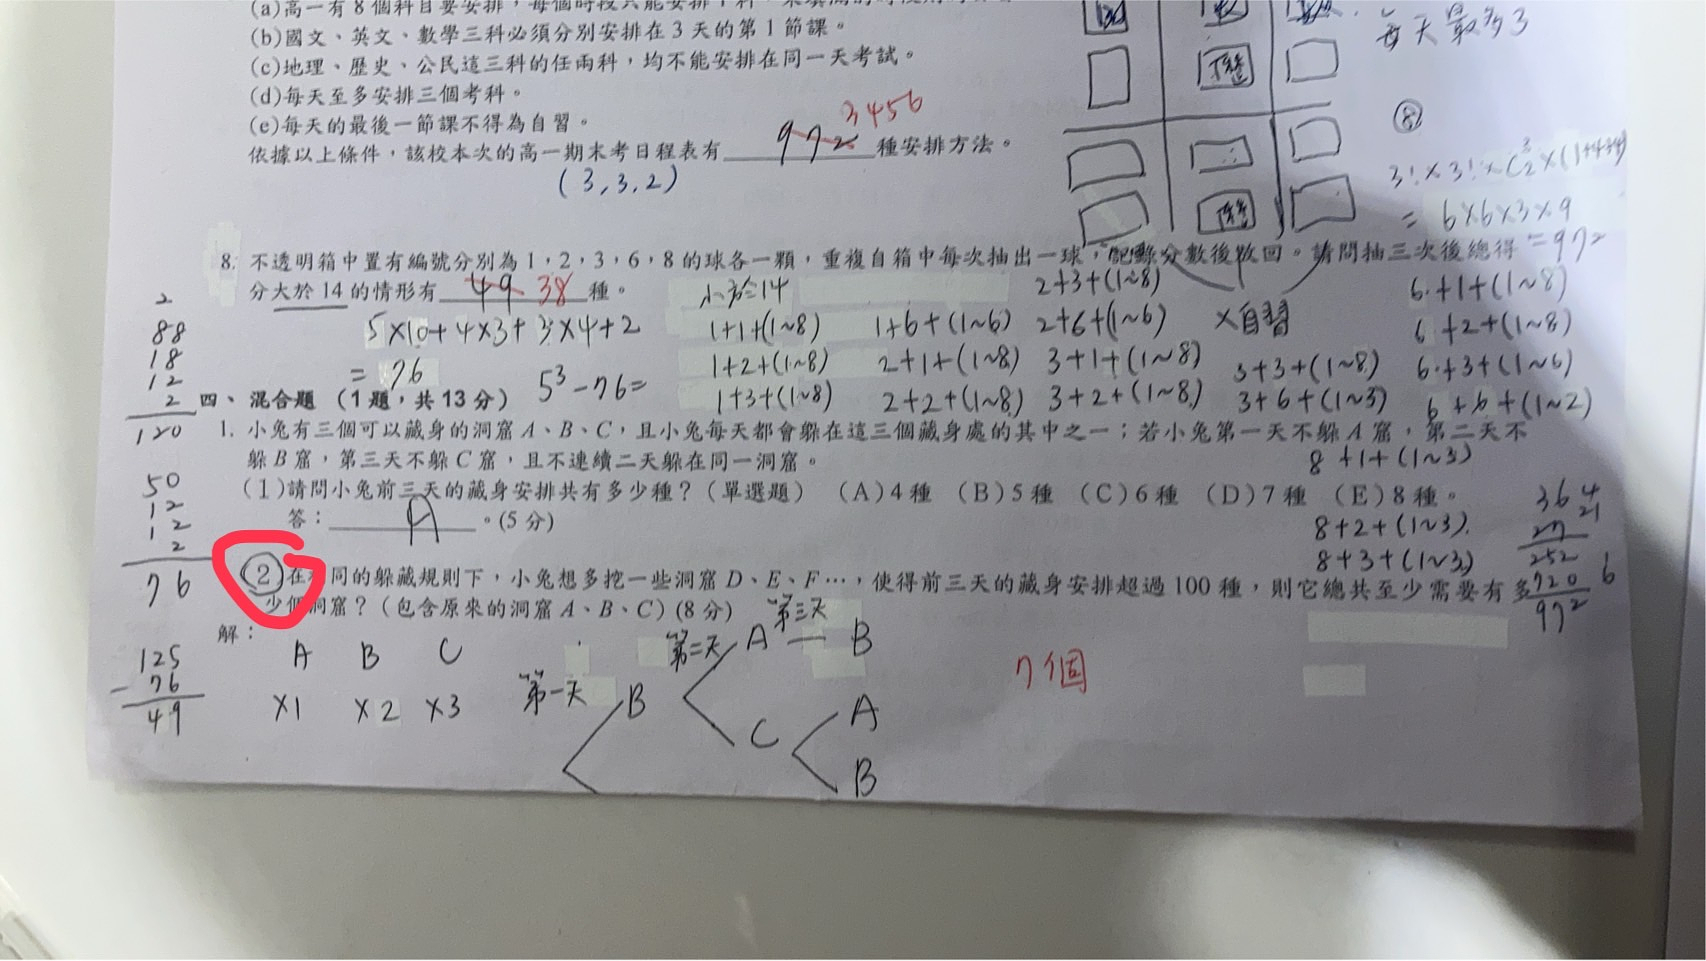 (a)高一有8個科目要安排，每個時段只能安排1科，
(b)國文、英文、數學三科必須分別安排在3天的第1節課。
(c)地理、歷史、公民這三科的任兩科，均不能安排在同一天考試。
(d)每天至多安排三個考科。
(e)每天的最後一節課不得為自習。
依據以上條件，該校本次的高一期末考日程表有 972 3456 種安排方法。
(3,3,2)
每天最多3
⑧
3!×3!×C³₂×(1+4+4)
= 6×6×3×9
=972
8. 不透明箱中置有編號分別為1，2，3，6，8的球各一顆，重複自箱中每次抽出一球，記錄分數後放回。請問抽三次後總得
分大於14的情形有 49 38 種。
小於=14
2+3+(1~8)
6+1+(1~8)
5×10+4×3+3×4+2
1+1+(1~8)
1+6+(1~6)
2+6+(1~6)
×自習
6+2+(1~8)
= 76
5³-76=
1+2+(1~8)
2+1+(1~8)
3+1+(1~8)
3+3+(1~8)
6+3+(1~6)
1+3+(1~8)
2+2+(1~8)
3+2+(1~8)
3+6+(1~3)
6+6+(1~2)
2
88
18
12
2
120
四、混合題（1題，共13分）
1. 小兔有三個可以藏身的洞窟A、B、C，且小兔每天都會躲在這三個藏身處的其中之一；若小兔第一天不躲A窟，第二天不
躲B窟，第三天不躲C窟，且不連續二天躲在同一洞窟。
8+1+(1~3)
(1)請問小兔前三天的藏身安排共有多少種？（單選題）（A）4種（B）5種（C）6種（D）7種（E）8種。
答： A 。(5分)
8+2+(1~3)
8+3+(1~3)
50
12
12
2
76
252
720
972
(2)在同的躲藏規則下，小兔想多挖一些洞窟D、E、F…，使得前三天的藏身安排超過100種，則它總共至少需要有多
少個洞窟？（包含原來的洞窟A、B、C）(8分)
解：
A B C
×1 ×2 ×3
第一天
第二天
第三天
B
A
B
C
A
B
7個
125
-76
49